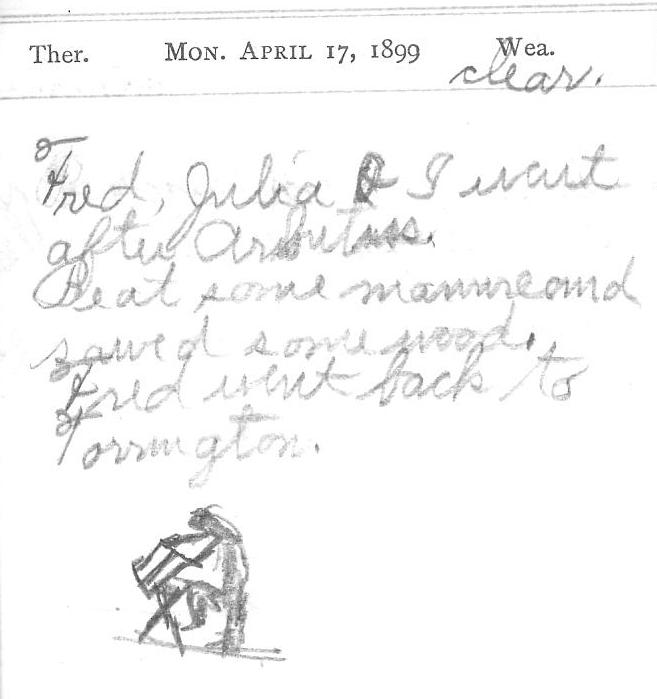 Ther. MON. APRIL 17, 1899 Wea.
clear.
Fred, Julia & I went
after Arbutus.
Beat some manure and
sawed some wood.
Fred went back to
Torrington.